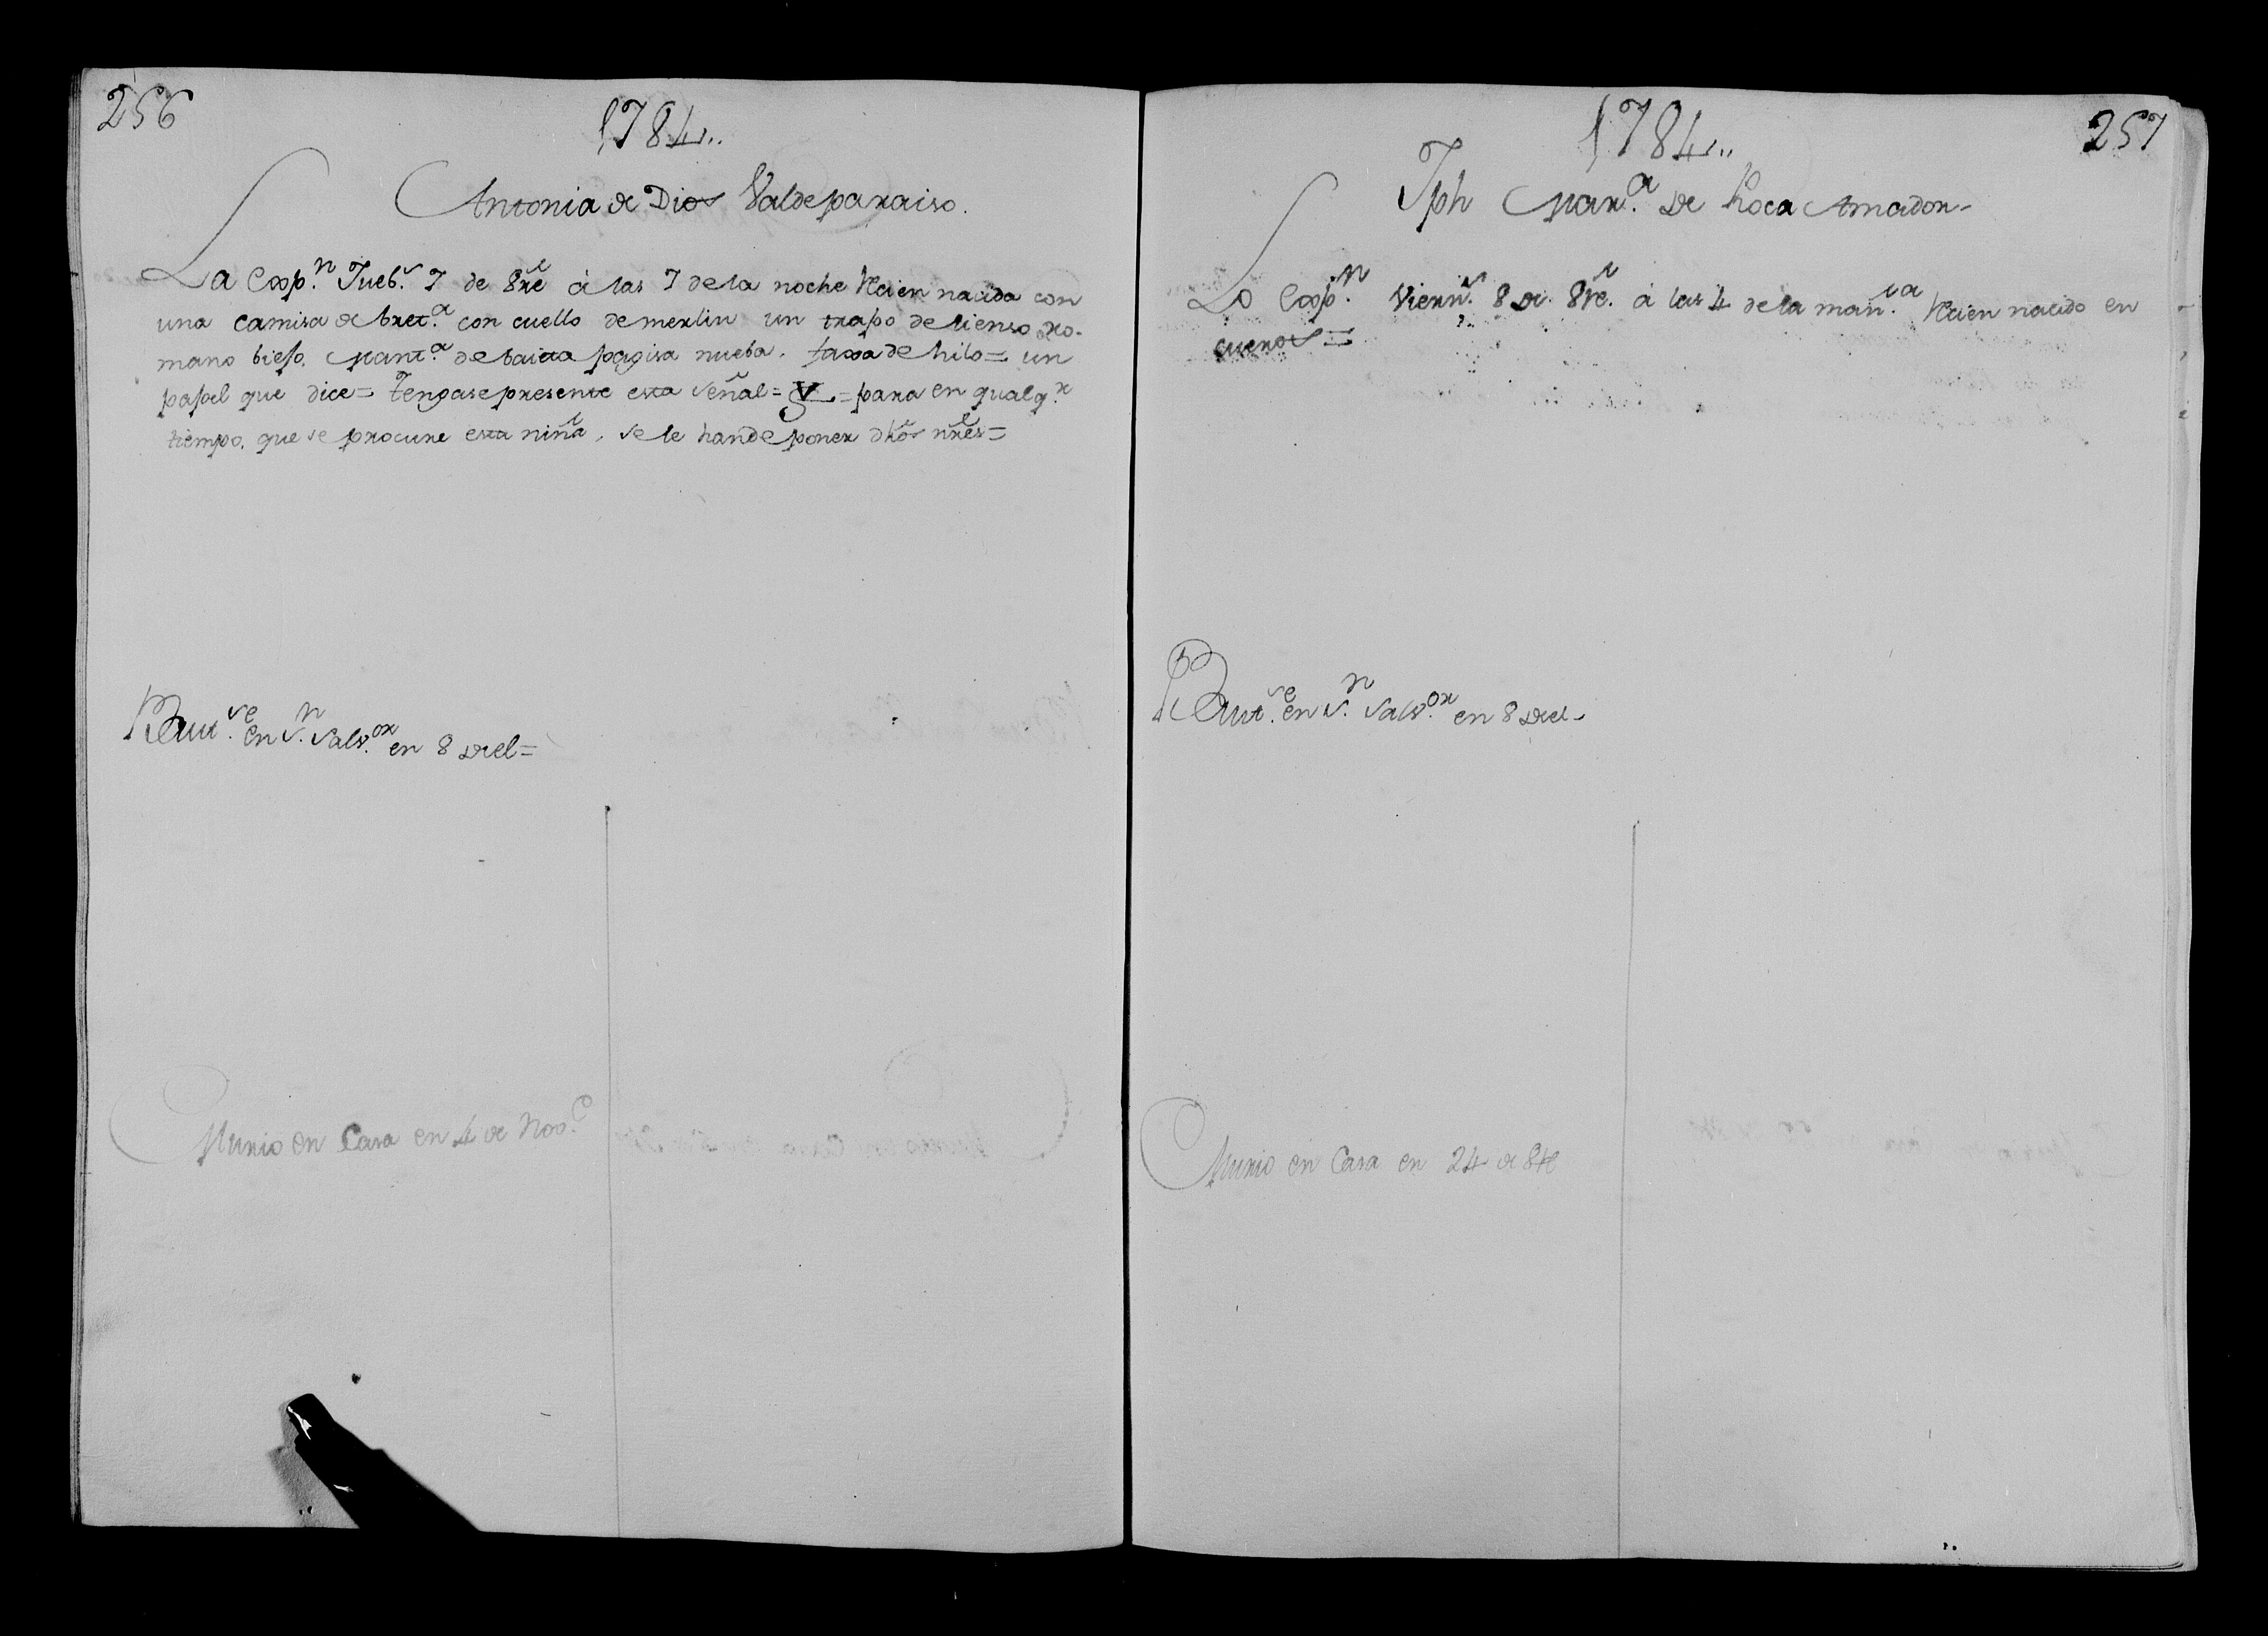 256
1784..
Antonia de Dios Valdeparaiso.
La Exp.n Jueb.s 7 de 8re à las 7 de la noche Recien nacida con
una camisa de bret.a con cuello de merlin un trapo de lienso ro-
mano biejo. Mant.a de baieta pagisa nueba. faxa de hilo= un
papel que dice= Tengase presente esta señal= =para en qualq.r
tiempo. que se procure esta niña, se le han de poner dhos nres=
Baut.se en S.n Salv.or en 8 del=
Murio en Casa en 4 de Nov.e
257
1784..
Jph Mar.a de Roca Amador-
Lo Exp.n Viern.s 8 de 8re. à las 4 de la mañ.a Recien nacido en
cueros=
Baut.se en S.n Salv.or en 8 del-
Murio en Casa en 24 de 8re